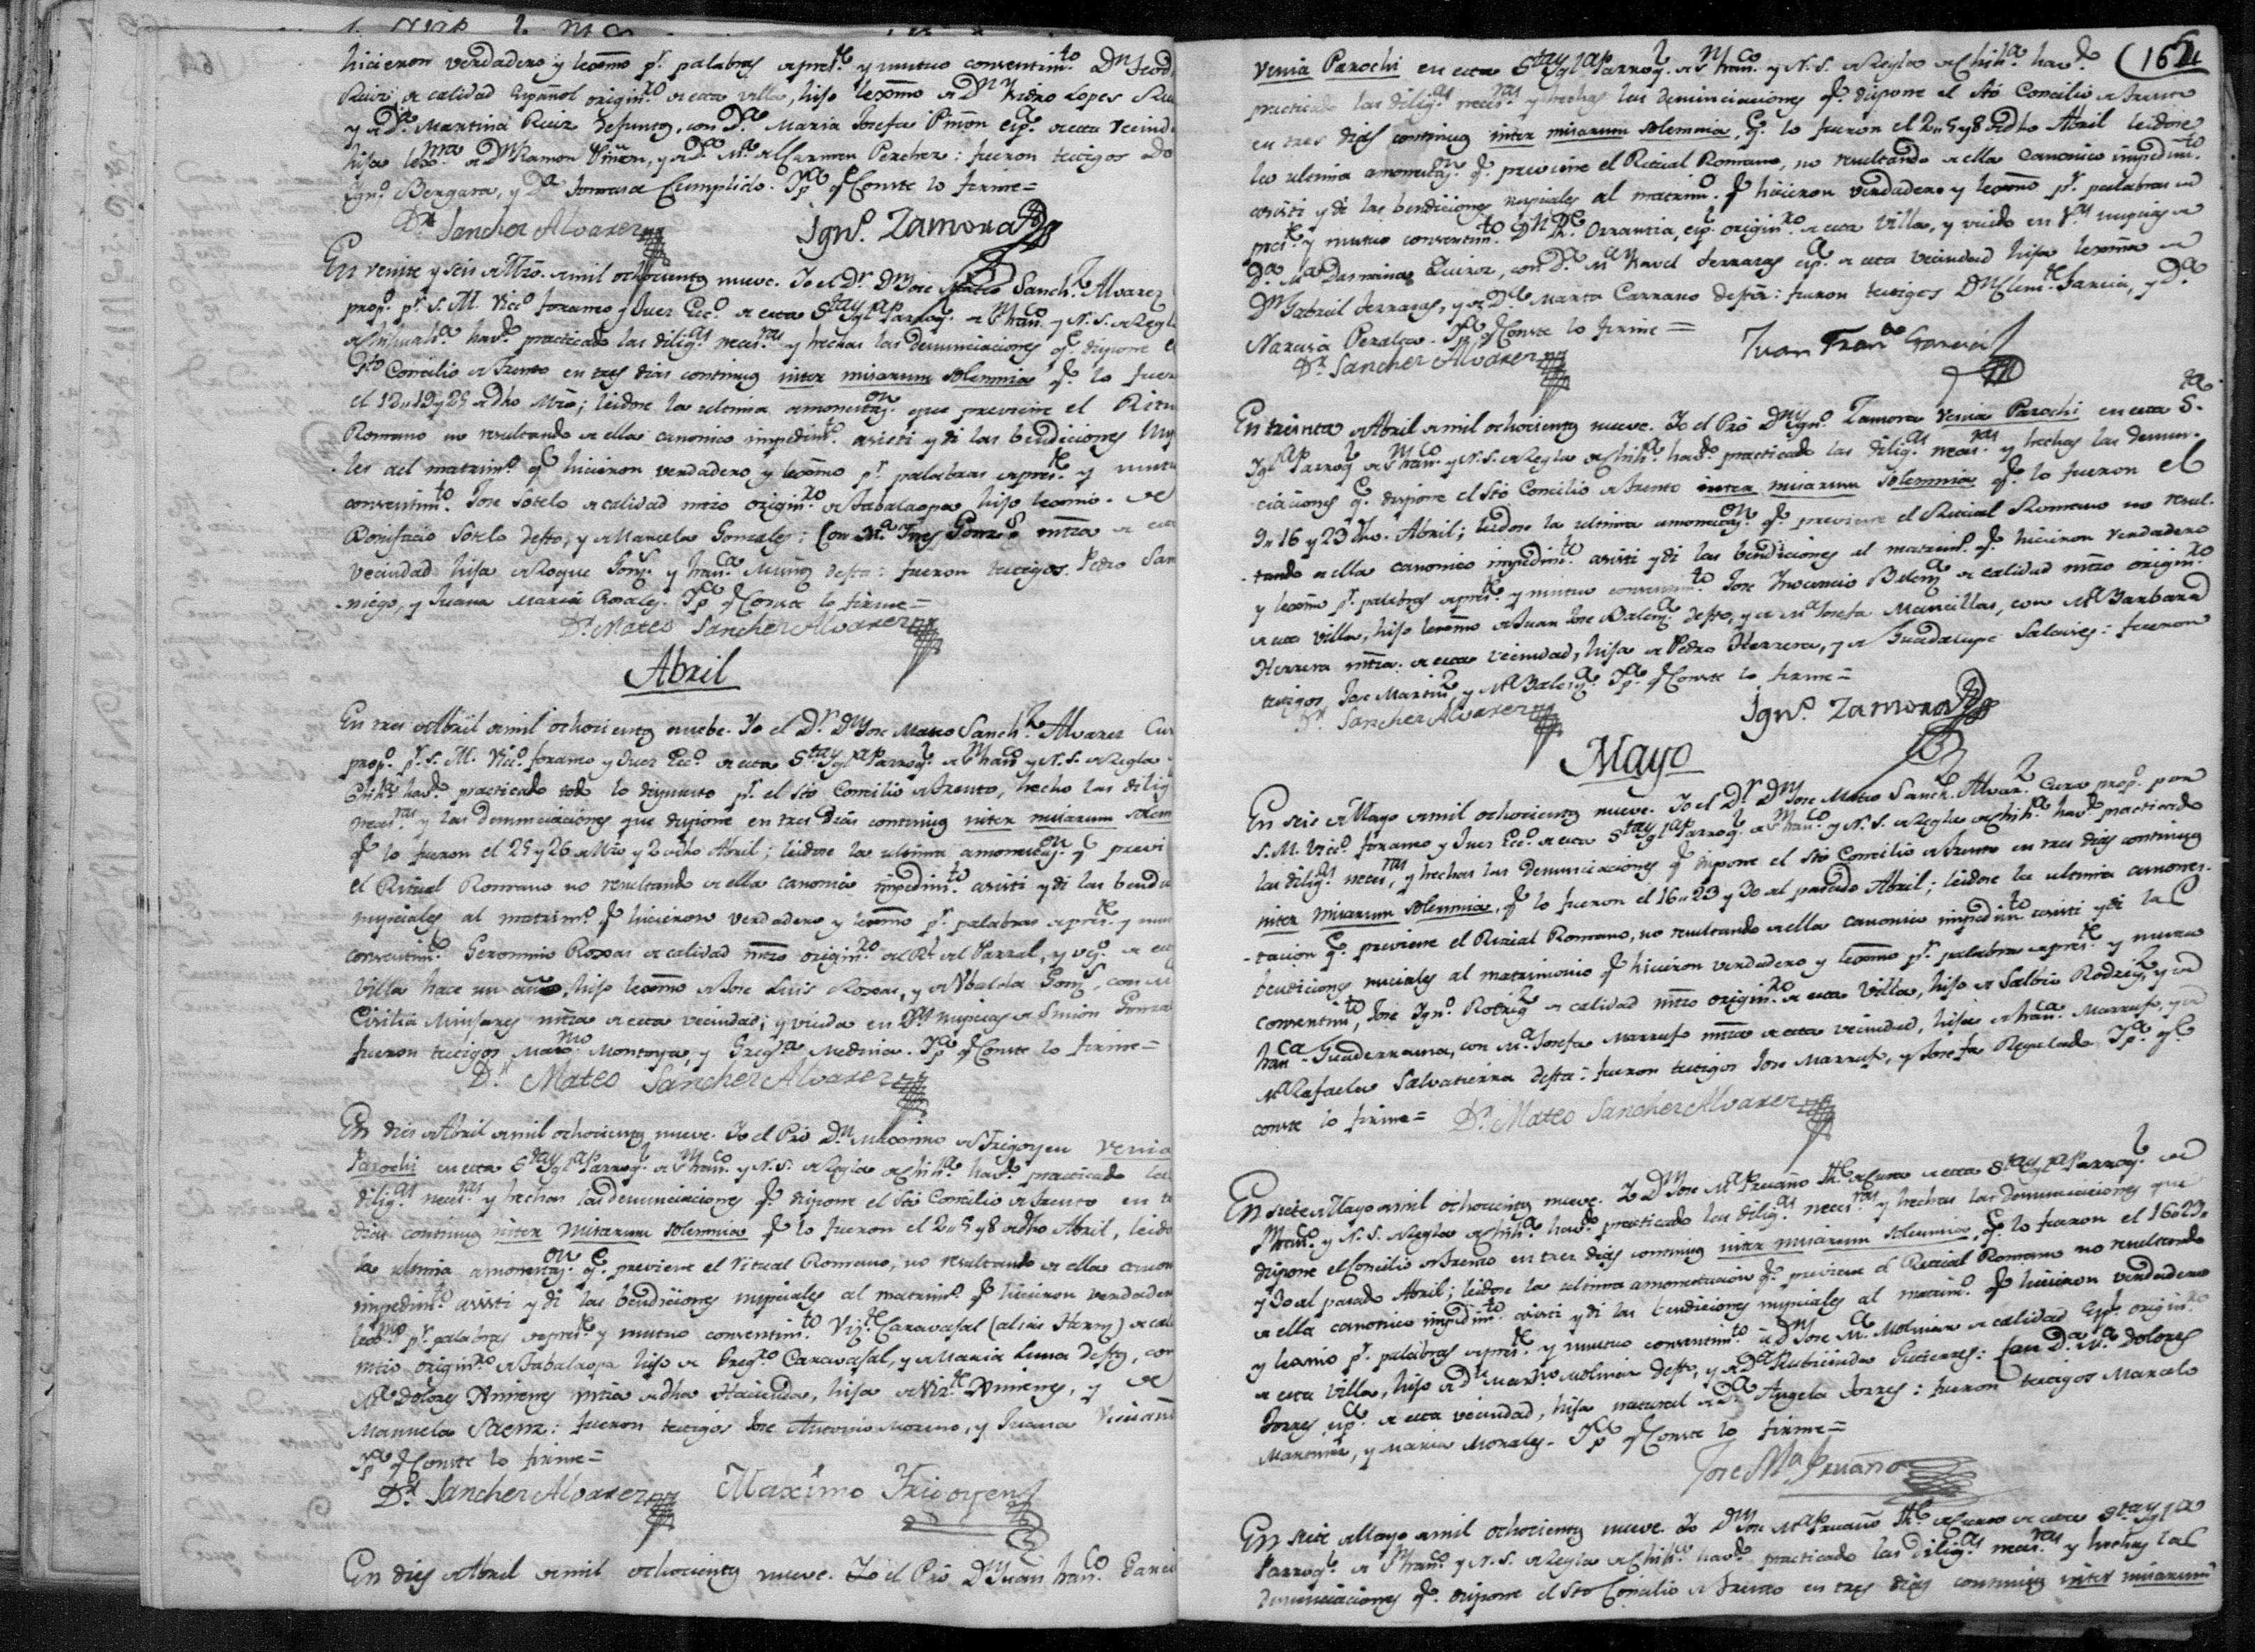 hicieron verdadero y lexmo pr. palabras de preste. y mutuo consentimto. Dn
Ruiz de calidad Español originro. de esta villa, hijo lexmo de Dn Ysidro Lopes
y de Da. Martina Ruiz defuntos, con Da. Maria Josefa Piñon espa. de esta vecind
hija lexma de Dn Ramon Piñon, y de Da. Ma. del Carmen Percher: fueron testigos
Ygno. Bergara, y Da. Tomasa Cumplido. Ypa. qe. Conste lo firme=
Dr. Sanchez Alvarez Ygno. Zamora
En veinte y seis de Mzo. de mil ochocientos nueve. Yo el Dr. Dn Jose Mateo Sanchz. Alvarez
propo. pr. S. M. Vico. foraneo y Juez Ecco. de esta Sta. Ygla. Parroql. de Sn Franco. y N. S. de Regla
de Chihuaha. havdo. practicado las diligas. necesras. y hechas las denunciaciones qe. dispone el
Sto Concilio de Trento en tres dias continuos inter misarum solemnia qe. lo fueron
el 12, 19 y 25 de dho Mzo; leidose la ultima amonestaon. que previene el Ritu
Romano no resultando de ella canonico impedimto. asisti y di las bendiciones nup
les al matrimo. qe. hicieron verdadero y lexmo pr. palabras de preste. y mutu
consentimto. Jose Sotelo de calidad mtzo originro. de Tabalaopa hijo lexmo. de
Bonifacio Sotelo defto, y de Marcela Gonzales: Con Ma. Ynes Gonzs. mtza de esta
vecindad hija de Roque Gonzs. y Franca. Muñoz defta: fueron testigos Pedro San
niego, y Juana Maria Rosales. Ypa. qe. Conste lo firme=
Dr. Mateo Sanchez Alvarez
Abril
En tres de Abril de mil ochocientos nuebe. Yo el Dr. Dn Jose Mateo Sanchz. Alvarez Cur
propo. pr. S. M. Vico. foraneo y Juez Ecco. de esta Sta. Ygla. Parroql. de Sn Franco. y N. S. de Regla
Chiha. havdo. practicado todo lo dispuesto pr. el Sto Concilio de Trento, hecho las dilig
necesras. y las denunciaciones que dispone en tres dias continuos inter misarum solem
qe. lo fueron el 25 y 26 de Mzo y 2 de dho Abril; leidose la ultima amonestaon. qe. previ
el Ritual Romano no resultando de ella canonico impedimto. asisti y di las bendi
nupciales al matrimo. qe. hicieron verdadero y lexmo pr. palabras de preste. y mu
consentimto. Geronimo Roxas de calidad mtzo originro. del Rl. del Parral, y vezo. de esta
villa hace un año, hijo lexmo de Jose Luis Roxas, y de Ubalda Gonzs., con
Cisilia Minjares mtza de esta vecindad; y viuda en 2as. nupcias de Simon Gonza
fueron testigos Marno. Montoya, y Grega. Medina. Ypa. qe. Conste lo firme=
Dr. Mateo Sanchez Alvarez
En dies de Abril de mil ochocientos nueve. Yo el Pro Dn Maximo de Yrigoyen Venia
Parochi en esta Sta. Ygla. Parroql. de Sn Franco. y N. S. de Regla de Chiha. havdo. practicado las
diligas. necesras. y hechas las denunciaciones qe. dispone el Sto Concilio de Trento en
dias continuos inter misarum solemnia qe. lo fueron el 2, 5 y 8 de dho Abril, leido
la ultima amonestaon. qe. previene el Ritual Romano, no resultando de ella canon
impedimto. asisti y di las bendiciones nupciales al matrimo. qe. hicieron verdadero
lexmo pr. palabras de preste. y mutuo consentimto. Vizte. Caravajal (alias Haros) de cali
mtzo originro. de Tabalaopa hijo de Grego. Caravajal, y de Maria Luna deftos, con
Ma. Dolores Ximenes mtza de dha Hacienda, hija de Vizte. Ximenes, y de
Manuela Saenz: fueron testigos Jose Antonio Moreno, y Juana
Ypa. qe. Conste lo firme=
Dr. Sanchez Alvarez Maximo Yrigoyen
En dies de Abril de mil ochocientos nueve. Yo el Pro Dn Juan Franco. Garci
Venia Parochi en esta Sta. Ygla. Parroql. de Sn Franco. y N. S. de Regla de Chiha. havdo.
practicado las diligas. necesras. y hechas las denunciaciones qe. dispone el Sto Concilio de Trento
en tres dias continuos inter misarum solemnia, qe. lo fueron el 2, 5 y 8 de dho Abril leidose
la ultima amonestaon. qe. previene el Ritual Romano, no resultando de ella canonico impedimto.
asisti y di las bendiciones nupciales al matrimo. qe. hicieron verdadero y lexmo pr. palabras de
preste. y mutuo consentimto. Dn Orrantia, espl. originro. de esta villa, y viudo en 1as. nupcias de
Da. Ma. Quiroz, con Da. Ma. Ysavel Terrazas espa. de esta vecindad hija lexma de
Dn Gabriel Terrazas, y de Da. Marta Carrasco deftos: fueron testigos Dn Clemte. Garcia, y Da.
Narcisa Peralta. Ypa. qe. Conste lo firme=
Dr. Sanchez Alvarez Juan Franco. Garcia
En treinta de Abril de mil ochocientos nueve. Yo el Pro Dn Ygno. Zamora Venia Parochi en esta Sta.
Ygla. Parroql. de Sn Franco. y N. S. de Regla de Chiha. havdo. practicado las diligas. necesras. y hechas las denun-
ciaciones qe. dispone el Sto Concilio de Trento inter misarum solemnia qe. lo fueron el
9, 16 y 23 dho. Abril; leidose la ultima amonestaon. qe. previene el Ritual Romano no resul-
tando de ella canonico impedimto. asisti y di las bendiciones al matrimo. qe. hicieron verdadero
y lexmo pr. palabras de preste. y mutuo consentimto. Jose Ynocencio Balenza. de calidad mtzo originro.
de esta villa, hijo lexmo de Juan Jose Balenza. defto, y de Ma. Josefa Mancillas, con Ma. Barbara
Herrera mtza. de esta vecindad, hija de Pedro Herrera, y de Guadalupe Salaises: fueron
testigos Jose Martinz. y Ma. Balenza. Ypa. qe. Conste lo firme=
Dr. Sanchez Alvarez Ygno. Zamora
Mayo
En seis de Mayo de mil ochocientos nueve. Yo el Dr. Dn Jose Mateo Sanchz. Alvarz. Cura propo. por
S. M. Vico. foraneo y Juez Ecco. de esta Sta. Ygla. Parroql. de Sn Franco. y N. S. de Regla de Chiha. havdo. practicado
las diligas. necesras. y hechas las denunciaciones qe. dispone el Sto Concilio de Trento en tres dias continuos
inter misarum solemnia, qe. lo fueron el 16, 23 y 30 del pasado Abril; leidose la ultima amones-
tacion qe. previene el Ritual Romano, no resultando de ella canonico impedimto. asisti y di las
bendiciones nuciales al matrimonio qe. hicieron verdadero y lexmo pr. palabra de preste. y mutuo
consentimto, Jose Ygno. Rodrigz. de calidad mtzo originro. de esta villa, hijo de Salbio Rodrigz. y de
Franca. Guaderrama, con Ma. Josefa Marrufo mtza de esta vecindad, hija de Franco. Marrufo, y de
Ma. Rafaela Salvatierra defta: fueron testigos Jose Marrufo, y Josefa Regalado. Ypa. qe.
conste lo firme= Dr. Mateo Sanchez Alvarez
En siete de Mayo de mil ochocientos nueve. Yo Dn Jose Ma. Pruaño Tte. de Cura de esta Sta. Ygla. Parroql. de
Sn Franco. y N. S. de Regla de Chiha. havdo. practicado las diligas. necesras. y hechas las denunciaciones que
dispone el Concilio de Trento en tres dias continuos inter misarum solemnia, qe. lo fueron el 16, 23,
y 30 del pasado Abril; leidose la ultima amonestacion qe. previene el Ritual Romano no resultando
de ella canonico impedimto. asisti y di las bendiciones nupciales al matrimo. qe. hicieron verdadero
y lexmo pr. palabras de preste. y mutuo consentimto. Dn Jose Ma. Molinar de calidad Espl. originro.
de esta villa, hijo de Dn Marno. Molinar defto, y de Da. Rubicinda Gutierres: Con Da. Ma. Dolores
Torres espa. de esta vecindad, hija natural de Da. Angela Torres: fueron testigos Marcelo
Maronuz, y Maria Morales. Ypa. qe. Conste lo firme=
Jose Ma. Pruaño
En siete de Mayo de mil ochocientos nueve. Yo Dn Jose Ma. Pruaño Tte. de Cura de esta Sta. Ygla.
Parroql. de Sn Franco. y N. S. de Regla de Chiha. havdo. practicado las diligas. necesras. y hechas las
denunciaciones qe. dispone el Sto Concilio de Trento en tres dias continuos inter misarum